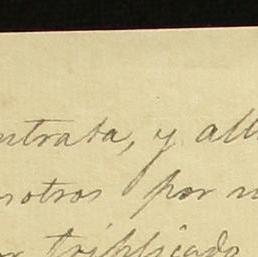 ntrata, y all
sotros por n
or triplicado